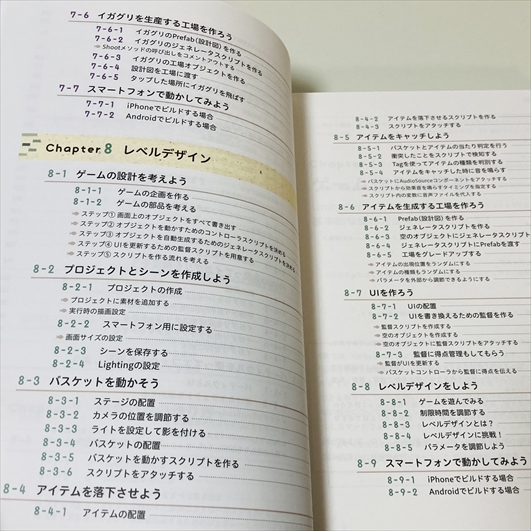 7-6 イガグリを生産する工場を作ろう
7-6-1 イガグリのPrefab(設計図)を作る
7-6-2 イガグリのジェネレータスクリプトを作る
Shootメソッドの呼び出しをコメントアウトする
7-6-3 イガグリの工場オブジェクトを作る
7-6-4 設計図を工場に渡す
7-6-5 タップした場所にイガグリを飛ばす
7-7 スマートフォンで動かしてみよう
7-7-1 iPhoneでビルドする場合
7-7-2 Androidでビルドする場合
Chapter 8 レベルデザイン
8-1 ゲームの設計を考えよう
8-1-1 ゲームの企画を作る
8-1-2 ゲームの部品を考える
ステップ① 画面上のオブジェクトをすべて書き出す
ステップ② オブジェクトを動かすためのコントローラスクリプトを決める
ステップ③ オブジェクトを自動生成するためのジェネレータスクリプトを決める
ステップ④ UIを更新するための監督スクリプトを用意する
ステップ⑤ スクリプトを作る流れを考える
8-2 プロジェクトとシーンを作成しよう
8-2-1 プロジェクトの作成
プロジェクトに素材を追加する
実行時の描画設定
8-2-2 スマートフォン用に設定する
画面サイズの設定
8-2-3 シーンを保存する
8-2-4 Lightingの設定
8-3 バスケットを動かそう
8-3-1 ステージの配置
8-3-2 カメラの位置を調節する
8-3-3 ライトを設定して影を付ける
8-3-4 バスケットの配置
8-3-5 バスケットを動かすスクリプトを作る
8-3-6 スクリプトをアタッチする
8-4 アイテムを落下させよう
8-4-1 アイテムの配置
8-4-2 アイテムを落下させるスクリプトを作る
8-4-5 スクリプトをアタッチする
8-5 アイテムをキャッチしよう
8-5-1 バスケットとアイテムの当たり判定を行う
8-5-2 衝突したことをスクリプトで検知する
8-5-3 Tagを使ってアイテムの種類を判別する
8-5-4 アイテムをキャッチした時に音を鳴らす
バスケットにAudioSourceコンポーネントをアタッチする
スクリプトから効果音を鳴らすタイミングを指定する
スクリプト内の変数に音声ファイルを代入する
8-6 アイテムを生成する工場を作ろう
8-6-1 Prefab(設計図)を作る
8-6-2 ジェネレータスクリプトを作る
8-6-3 空のオブジェクトにジェネレータスクリプトを
8-6-4 ジェネレータスクリプトにPrefabを渡す
8-6-5 工場をグレードアップする
アイテムの出現位置をランダムにする
アイテムの種類もランダムにする
パラメータを外部から調節できるようにする
8-7 UIを作ろう
8-7-1 UIの配置
8-7-2 UIを書き換えるための監督を作る
監督スクリプトを作成する
空のオブジェクトを作成する
空のオブジェクトに監督スクリプトをアタッチする
8-7-3 監督に得点管理してもらう
監督がUIを更新する
バスケットコントローラから監督に得点を伝える
8-8 レベルデザインをしよう
8-8-1 ゲームを遊んでみる
8-8-2 制限時間を調節する
8-8-3 レベルデザインとは?
8-8-4 レベルデザインに挑戦!
8-8-5 パラメータを調節しよう
8-9 スマートフォンで動かしてみよう
8-9-1 iPhoneでビルドする場合
8-9-2 Androidでビルドする場合